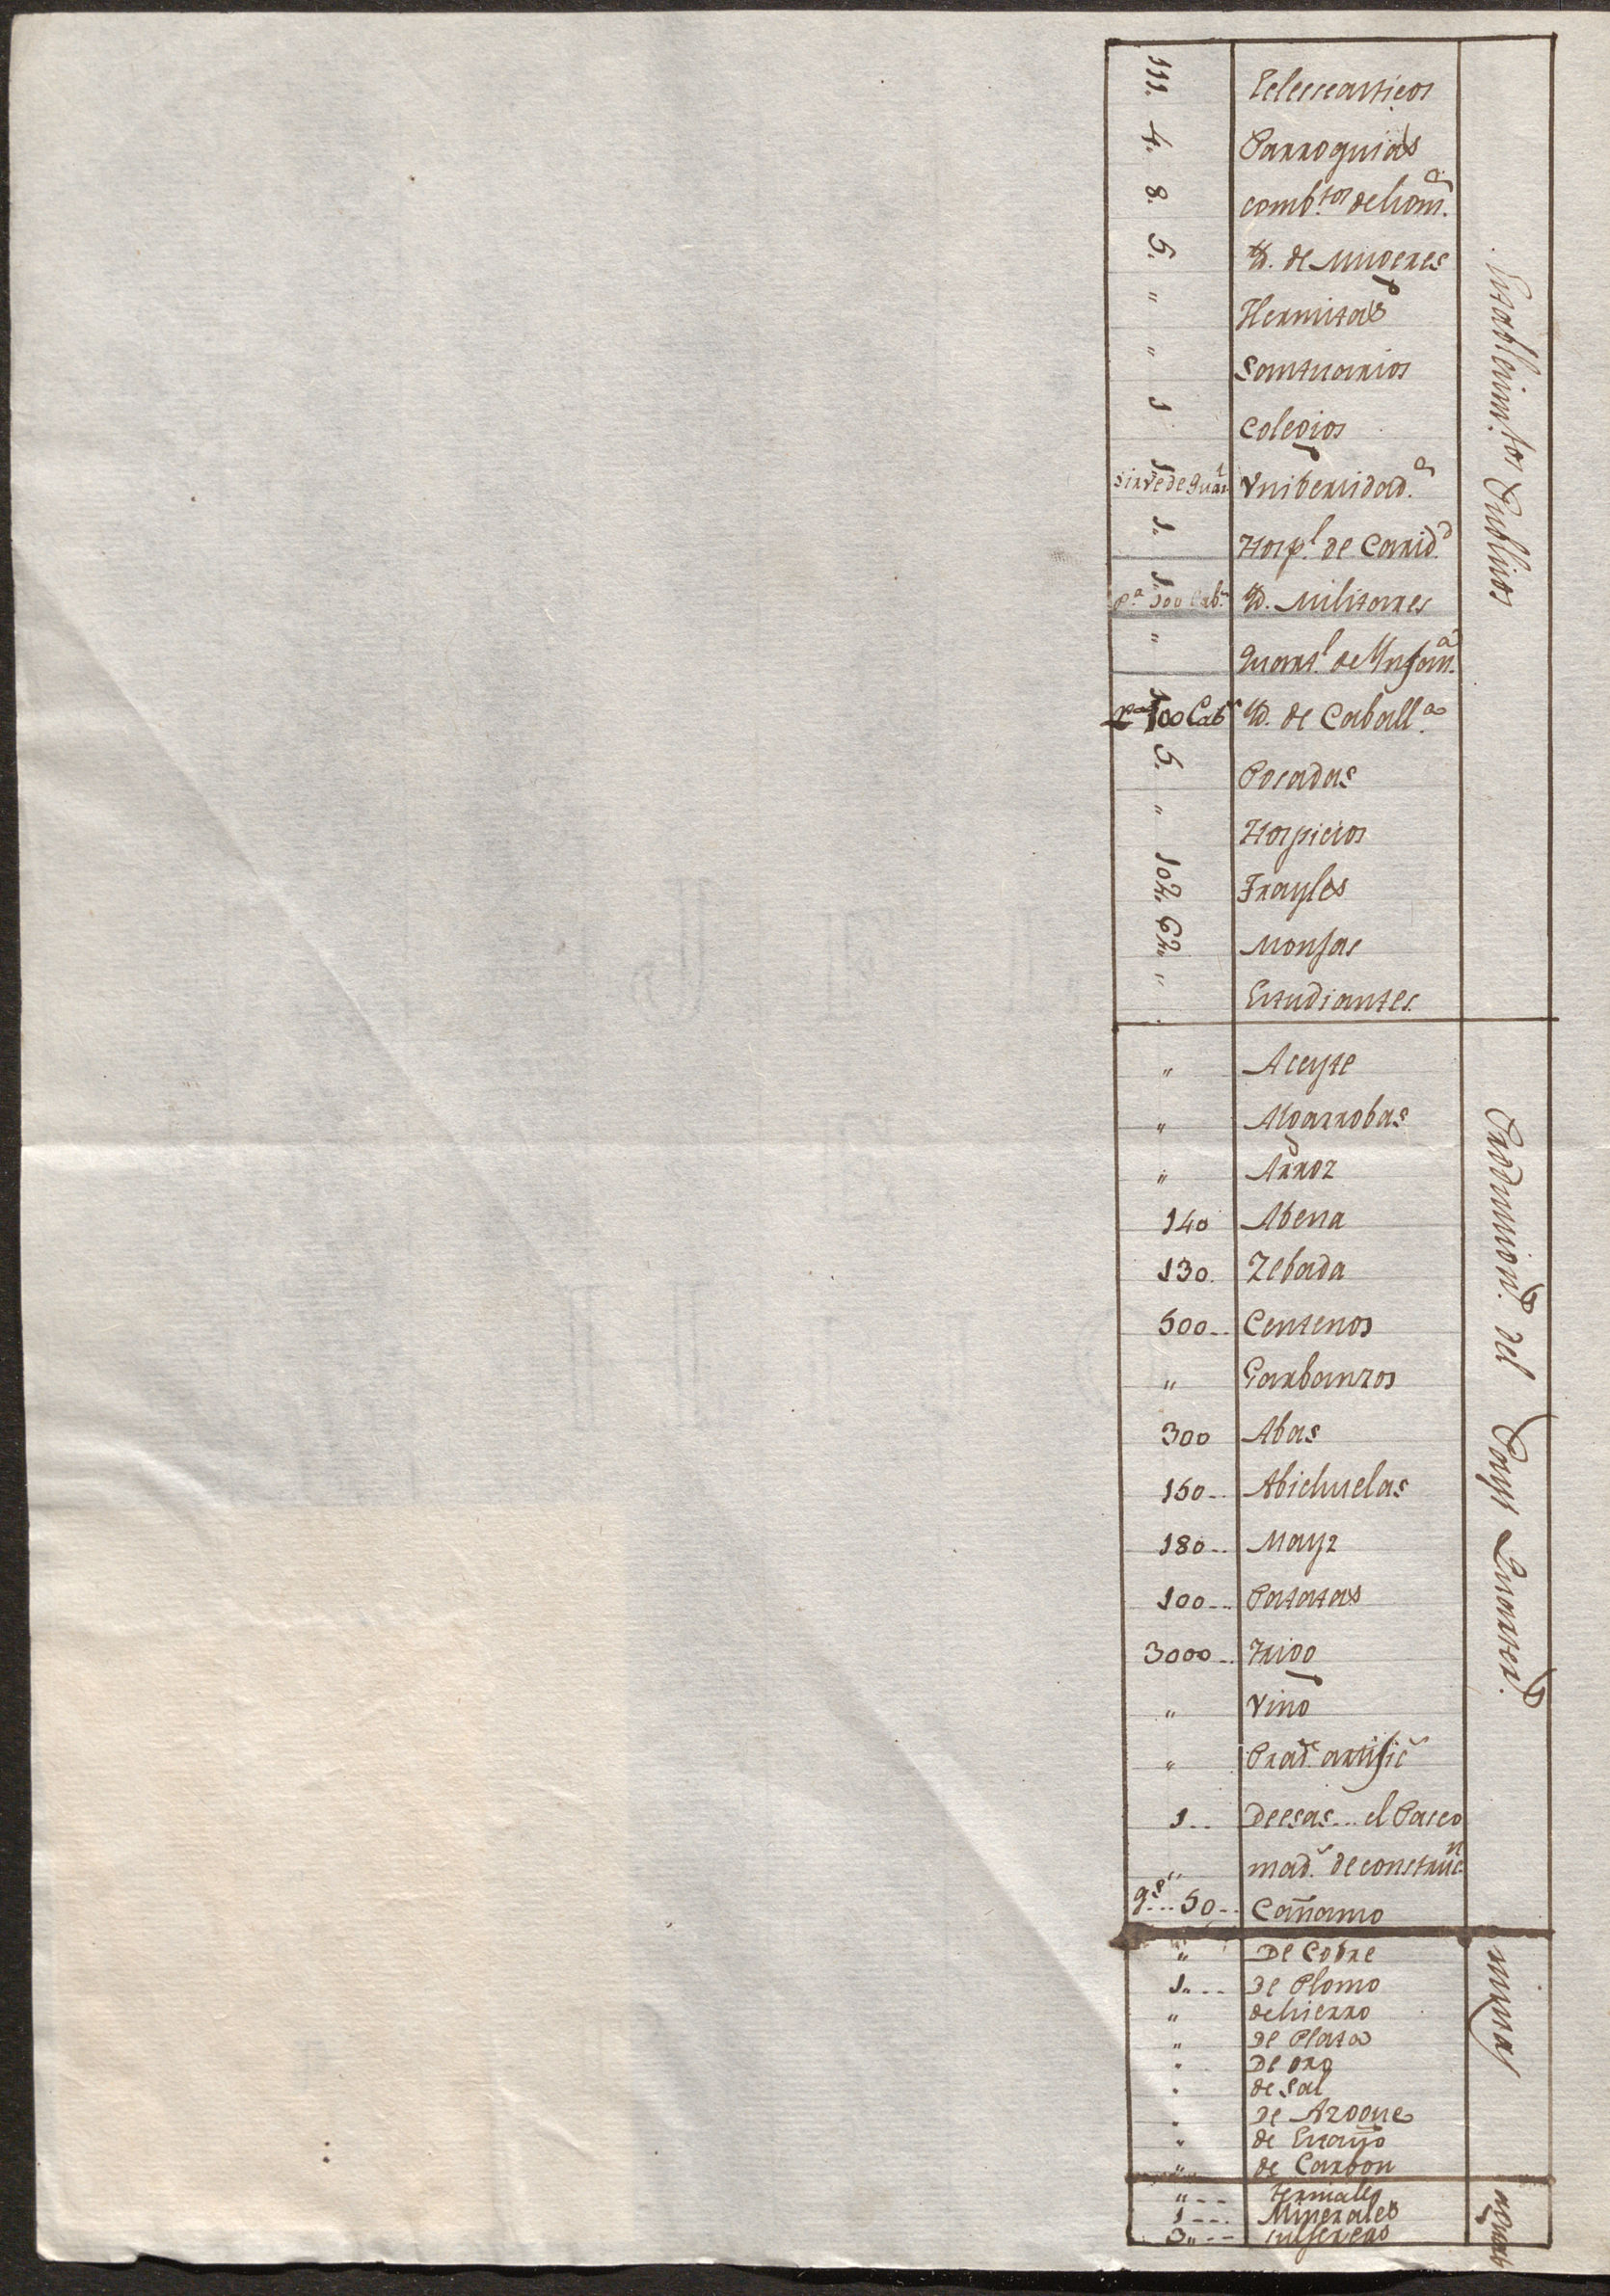 Establecim.tos Publicos
111. Eclecceasticos
4. Parroquias
8. comb.tos de hom.s
5. Yd. de Mugeres
" Hermitas
" Santuarios
1 Colegios
1 Sirve de Quar.l Vnibersidad.s
1. Hosp.l de Carid.d
1. P.a 100 Cab.s Yd. Militares
" Quart.l de Ynfan.a
1 P.a 100 Cab.s Yd. de Caball.a
5. Posadas
" Hospicios
102. Frayles
62. Monjas
" Estudiantes.
Producion.s del Pays Quarter.s
" Aceyte
" Algarrobas
" Arroz
140 Abena
130. Zebada
500.. Centenos
" Garbanzos
300 Abas
150.. Abichuelas
180.. Mayz
100... Patatas
3000.. Trigo
" Vino
" Prad.s artific.s
1.. Deesas... el Paseo
" mad.s de construc.n
q.s... 50.. Cañamo
minas
" De Cobre
1... de Plomo
" de hierro
" de Plata
" De oro
" de Sal
" de Azogue
" de Estaño
" de Carbon
aguas
"... termales
1... Minerales
3... sulfereas